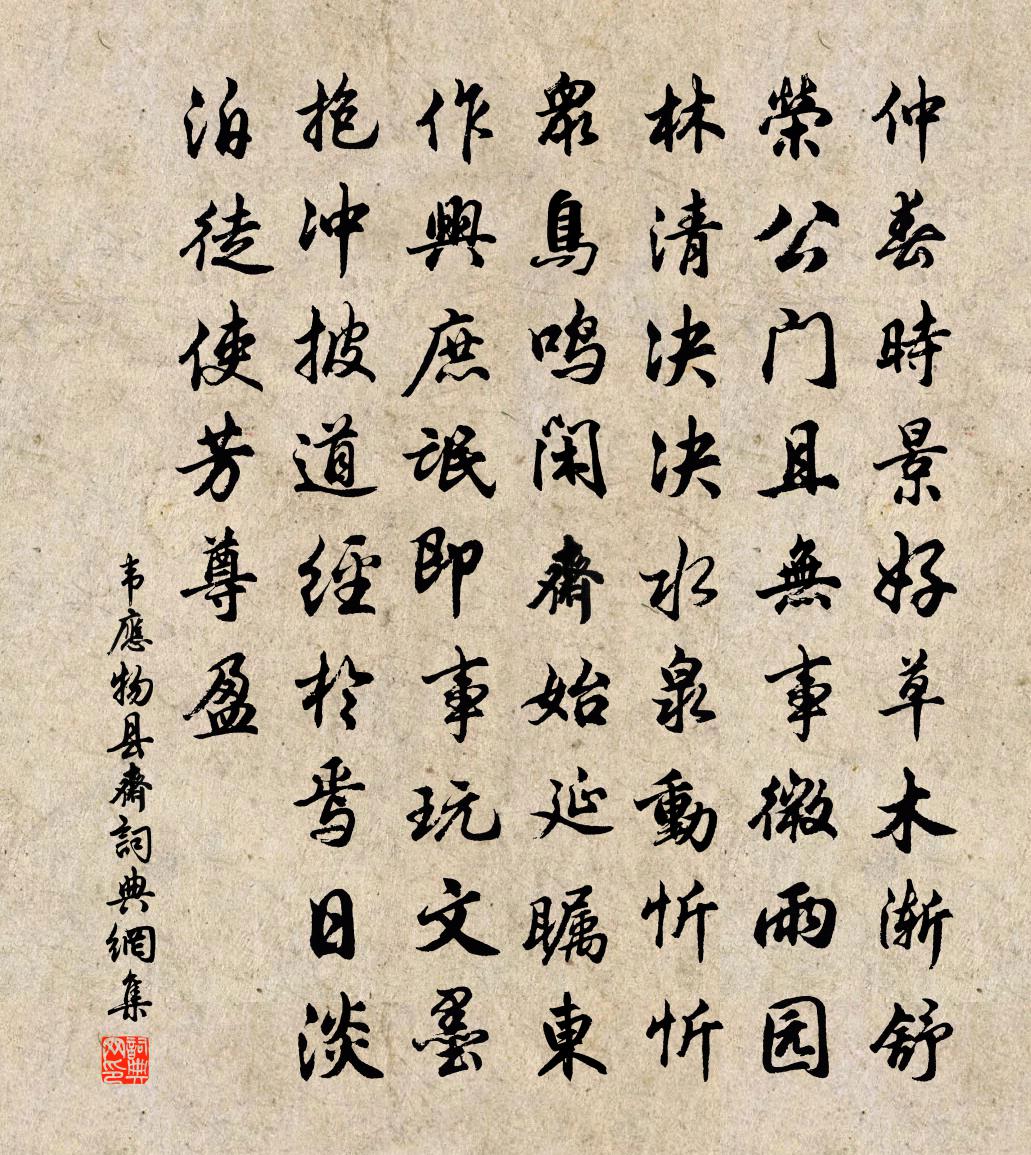 仲春時景好草木渐舒
榮公门且無事微雨园
林清决决水泉動忻忻
衆鳥鸣闲齋始延瞩東
作興庶氓即事玩文墨
抱冲披道經於焉日淡
泊徒使芳尊盈
韦應物县齋詞典網集
詞典网印